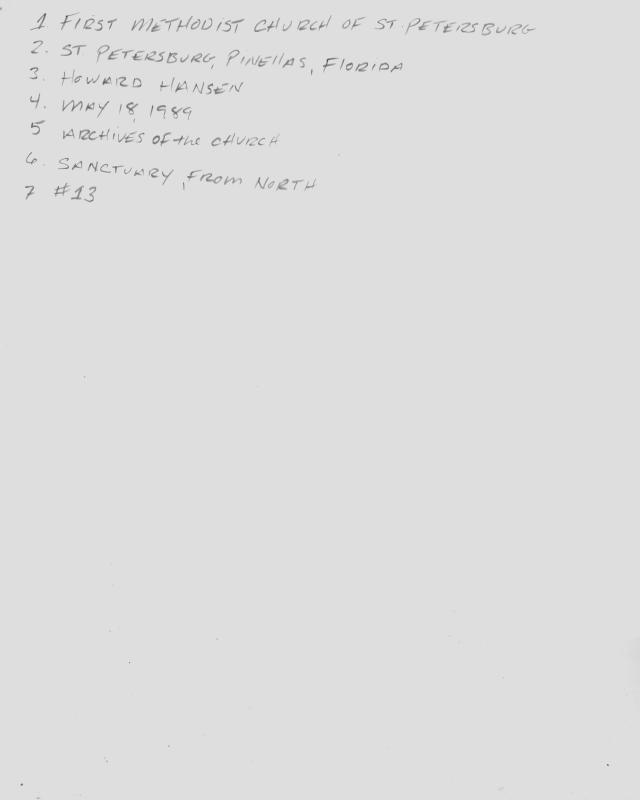 1. FIRST METHODIST CHURCH OF ST. PETERSBURG
2. ST PETERSBURG, PINELLAS, FLORIDA
3. HOWARD HANSEN
4. MAY 18, 1989
5 ARCHIVES OF the CHURCH
6. SANCTUARY, FROM NORTH
7 #13